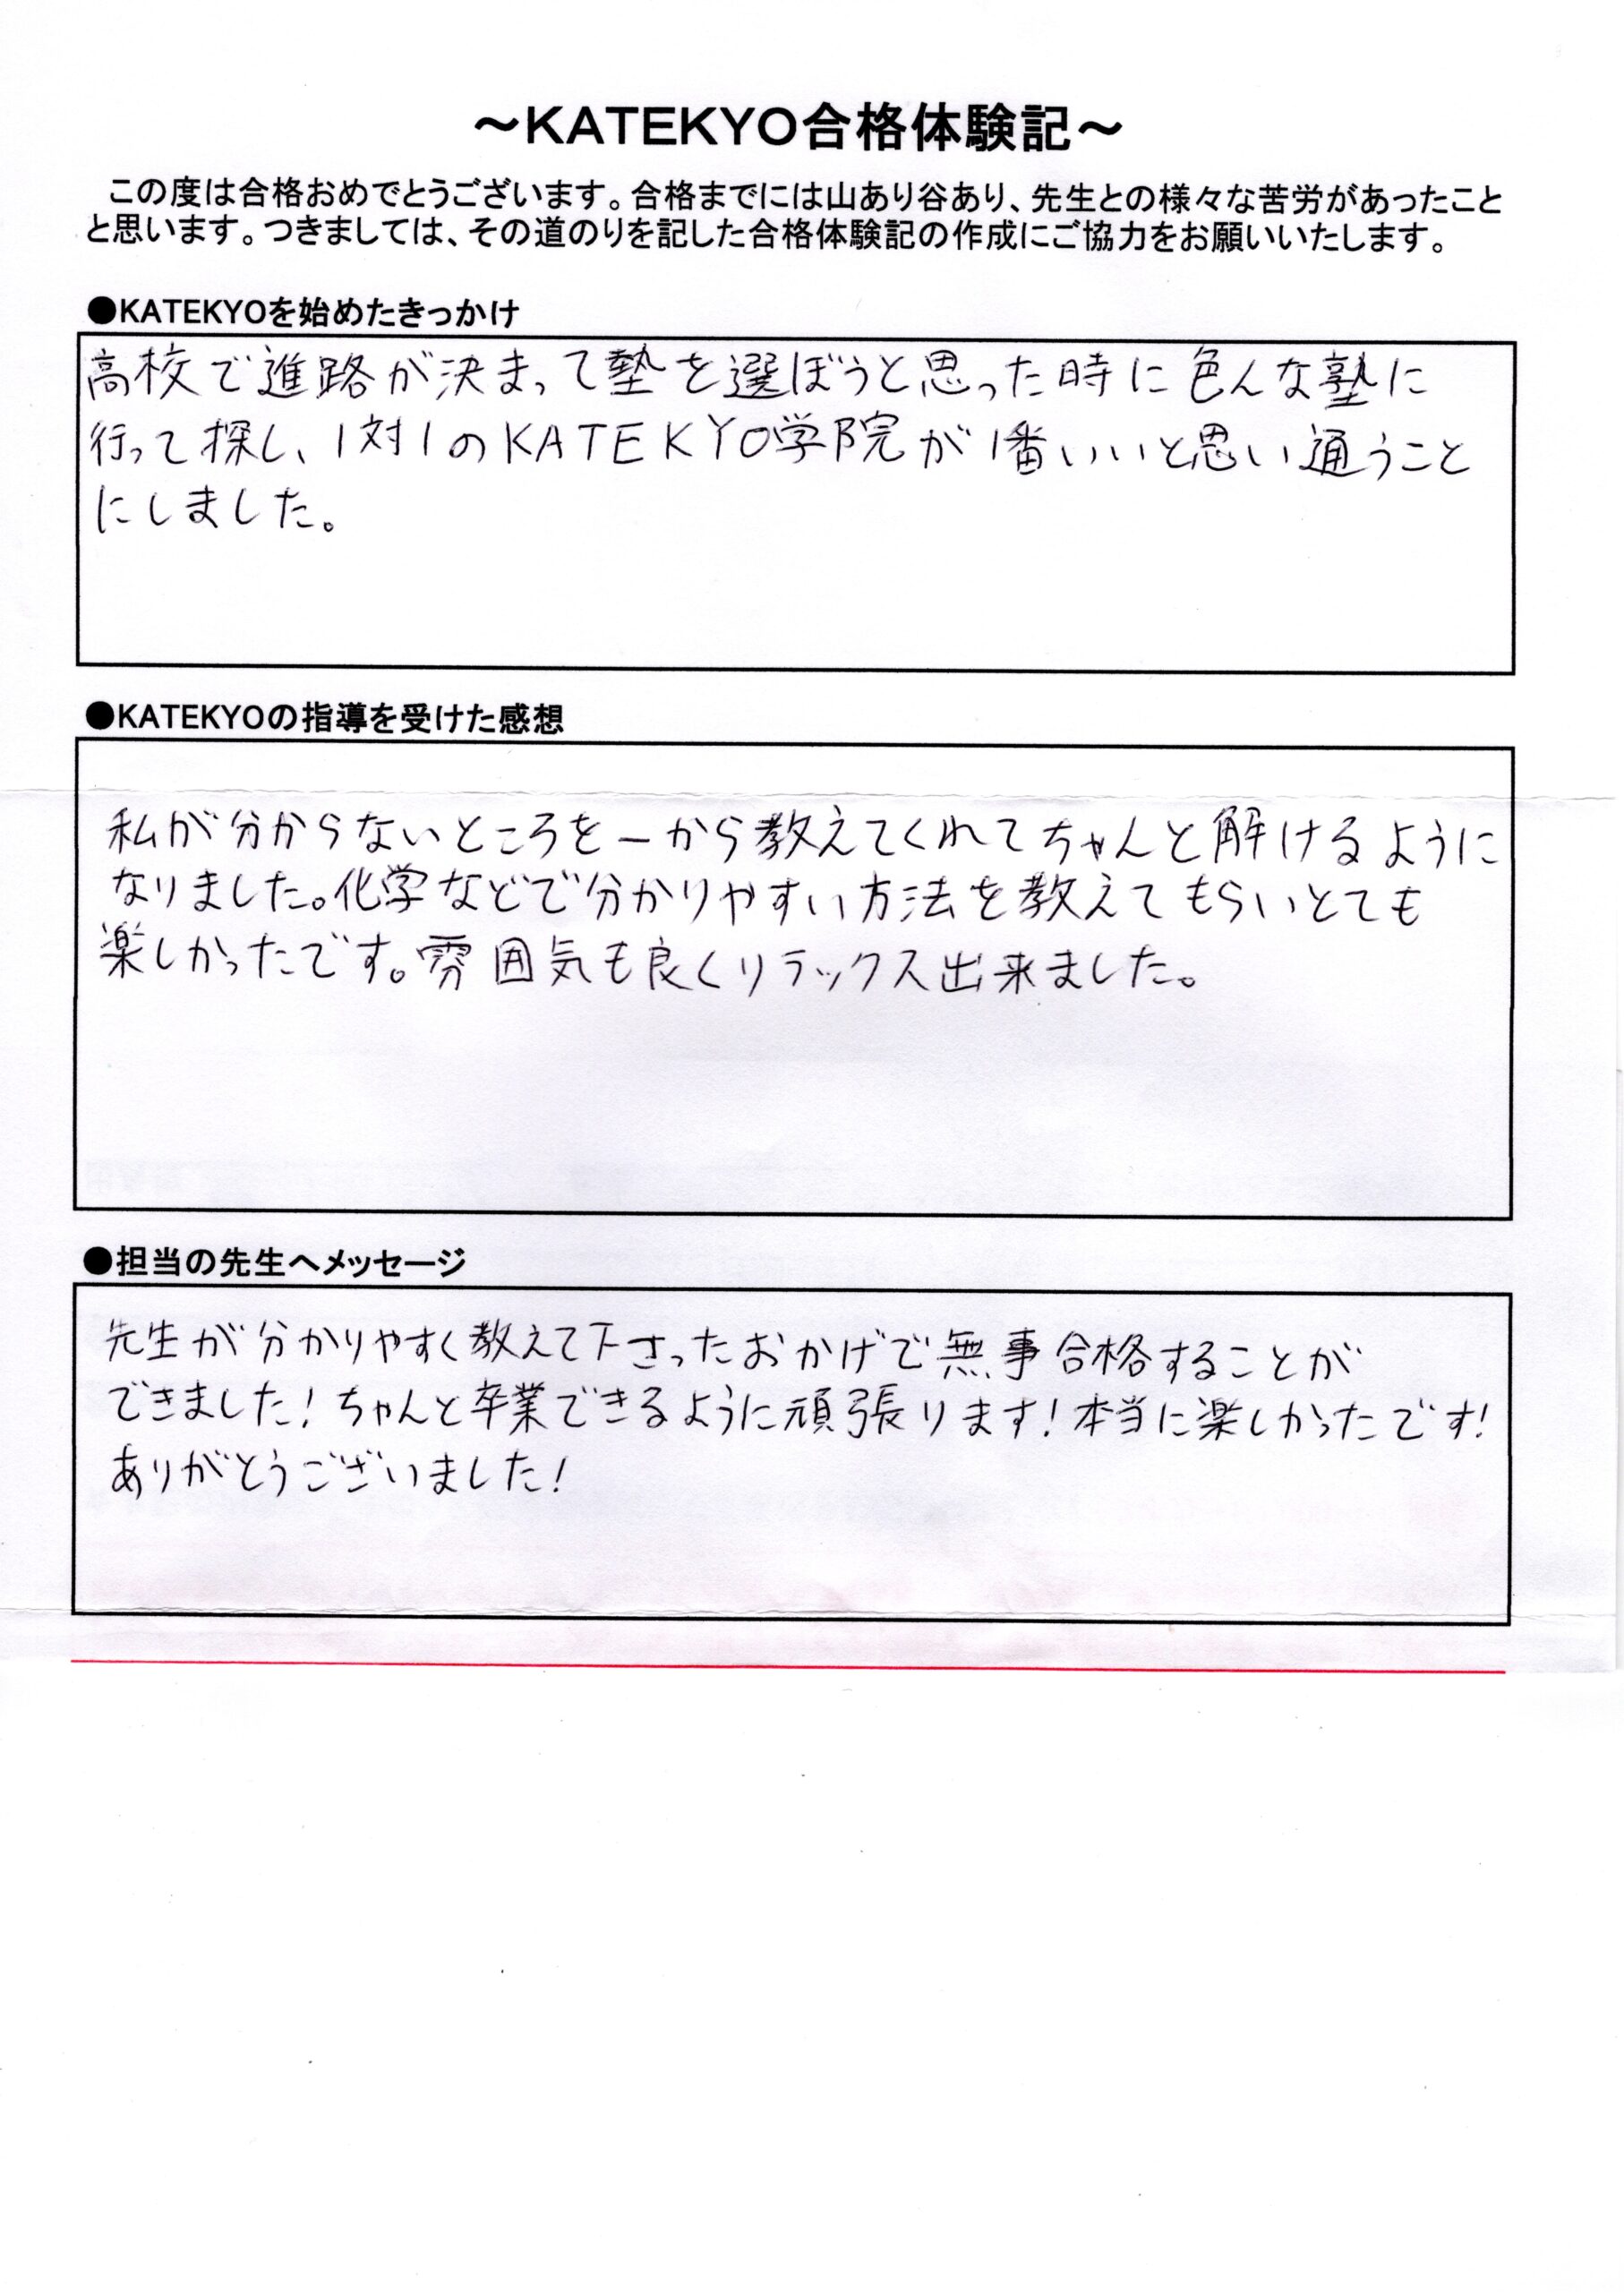 ～KATEKYO合格体験記～
この度は合格おめでとうございます。合格までには山あり谷あり、先生との様々な苦労があったこと
と思います。つきましては、その道のりを記した合格体験記の作成にご協力をお願いいたします。
●KATEKYOを始めたきっかけ
高校で進路が決まって塾を選ぼうと思った時に色んな塾に
行って探し、1対1のKATEKYO学院が1番いいと思い通うこと
にしました。
●KATEKYOの指導を受けた感想
私が分からないところを一から教えてくれてちゃんと解けるように
なりました。化学などで分かりやすい方法を教えてもらいとても
楽しかったです。雰囲気も良くリラックス出来ました。
●担当の先生へメッセージ
先生が分かりやすく教えて下さったおかげで無事合格することが
できました！ちゃんと卒業できるように頑張ります！本当に楽しかったです！
ありがとうございました！